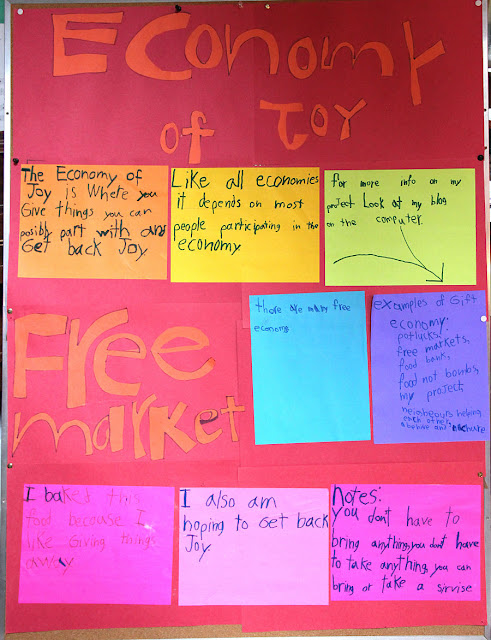 Economy
of Joy
The Economy of
Joy is Where you
Give things you can
possibly part with and
Get back Joy
Like all economies
it depends on most
people participating in the
economy
for more info on my
project Look at my blog
on the computer
Free
market
there are many free
economys
examples of Gift
economy:
potlucks,
free markets,
food bank,
food not bombs,
my project,
neighbours helping
each other,
and
I baked this
food because I
like Giving things
away
I also am
hoping to Get back
Joy
notes:
you dont have to
bring anything, you dont have
to take anything, you can
bring or take a sirvise